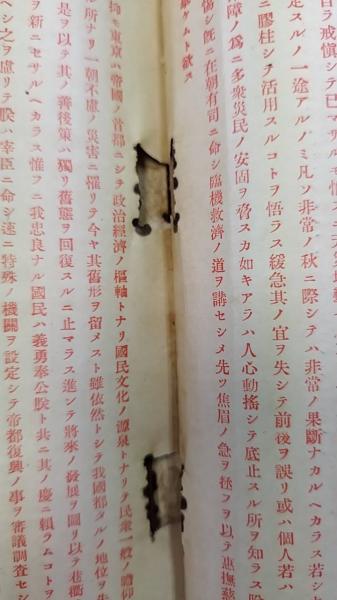 自ラ戒愼シテ已マサルモ惟フニ天災地變
定スルノ一途アルノミ凡ソ非常ノ秋ニ際シテハ非常ノ果斷ナカルヘカラス若シ
ニ膠柱シテ活用スルコトヲ悟ラス緩急其ノ宜ヲ失シテ前後ヲ誤リ或ハ個人若ハ
障ノ爲ニ多衆災民ノ安固ヲ脅スカ如キアラハ人心動搖シテ底止スル所ヲ知ラス
傷シ既ニ在朝有司ニ命シ臨機救濟ノ道ヲ講セシメ先ツ焦眉ノ急ヲ拯フヲ以テ惠撫慈
ケムト欲ス
抑モ東京ハ帝國ノ首都ニシテ政治經濟ノ樞軸トナリ國民文化ノ源泉トナリテ民衆一般ノ瞻仰
ル所ナリ一朝不慮ノ災害ニ罹リテ今ヤ其舊形ヲ留メスト雖依然トシテ我國都タルノ地位ヲ失
是ヲ以テ其ノ善後策ハ獨リ舊態ヲ回復スルニ止マラス進ンテ將來ノ發展ヲ圖リ以テ巷衢
ヲ新ニセサルヘカラス惟フニ我忠良ナル國民ハ義勇奉公朕ト共ニ其ノ慶ニ賴ラムコトヲ
ヘシ之ヲ慮リテ朕ハ宰臣ニ命シ速ニ特殊ノ機關ヲ設定シテ帝都復興ノ事ヲ審議調査セシ